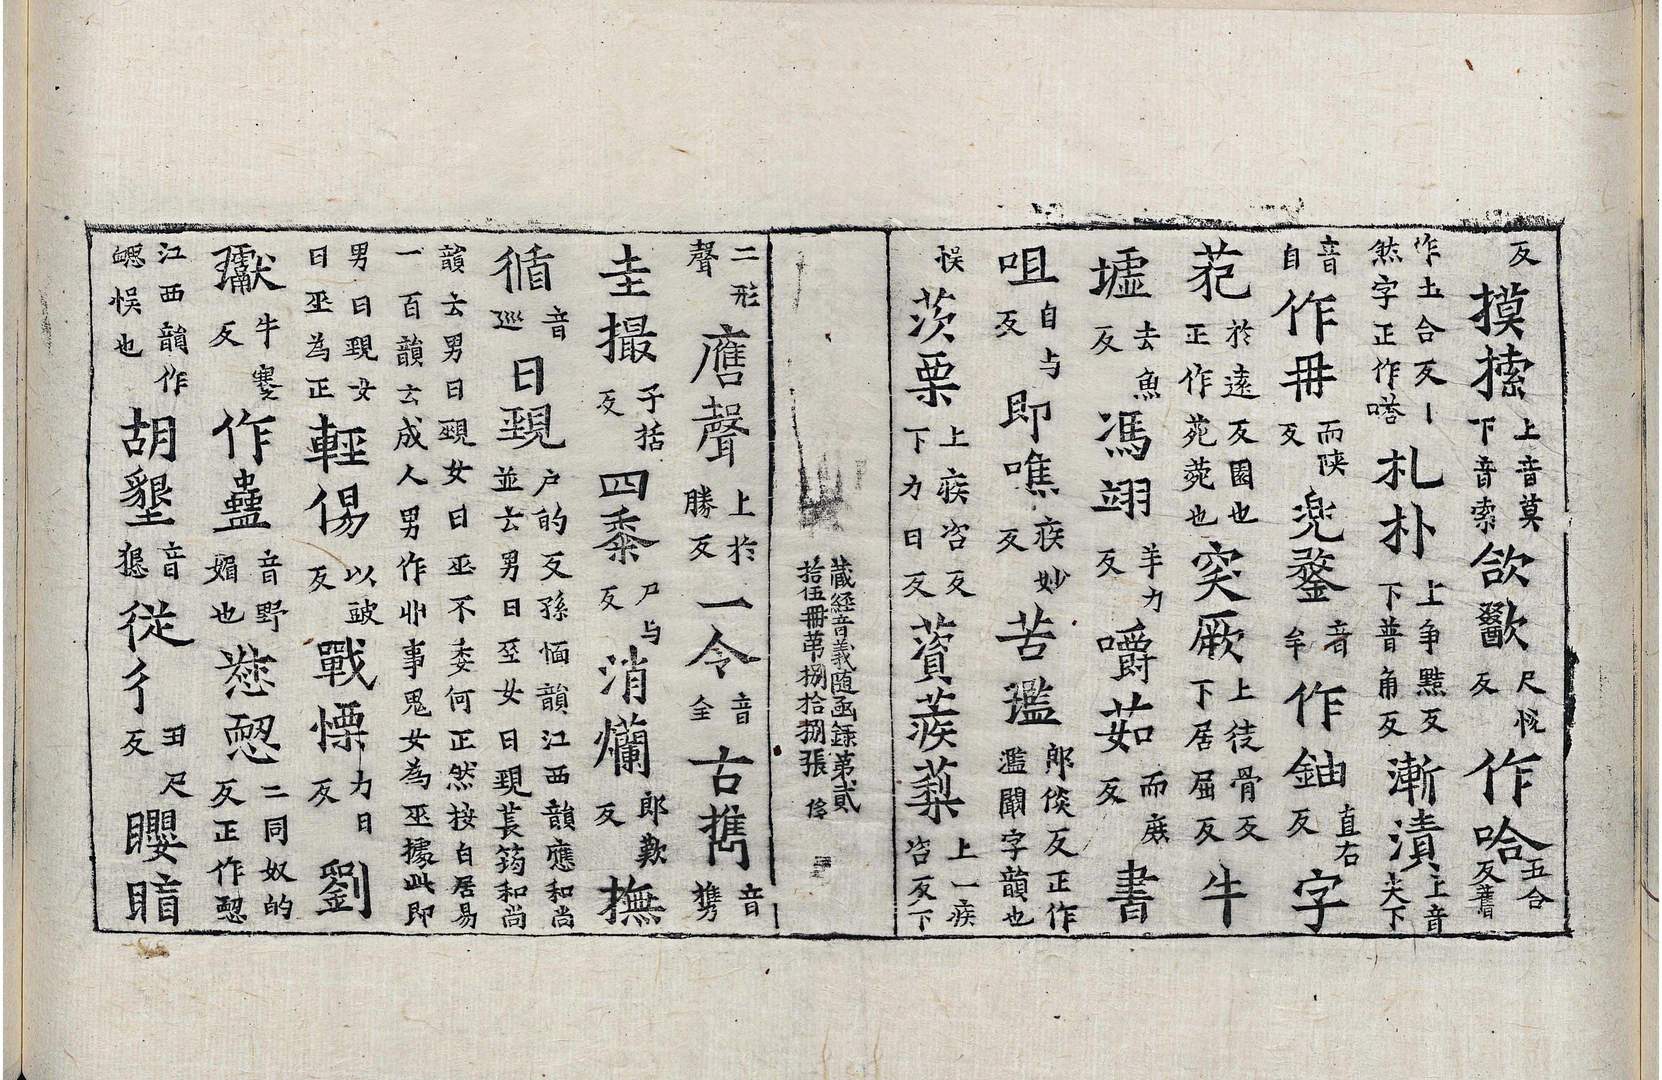 反摸搎上音莫下音索欱歠尺悅反作哈五合反舊
作土合反丨然字正作嗒札朴上争黠反下普角反漸漬上音尖下
音自作冊而陝反兜鍪音牟作鈾直右反字
苑於遠反園也正作苑菀也突厥上徒骨反下居屈反牛
墟去魚反馮翊羊力反嚼茹而庶反書
咀自与反即噍疾妙反苦濫郎倓反正作濫闞字韻也
悮茨栗上疾咨反下力日反薋蒺䔧上一疾咨反下
藏經音義随函録第貳拾伍冊第捌拾捌張
二形聲鷹聲上於勝反一令音全古擕音㩗
圭撮子括反四黍尸与反消爛郎歎反撫
循音巡曰覡户的反孫愐韻江西韻應和尚並云男曰巫女曰覡萇筠和尚
韻云男曰覡女曰巫不委何正然按白居易一百韻云成人男作丱事鬼女為巫據此即
男曰覡女曰巫為正輕傷以豉反戰慄力日反劉
瓛牛蹇反作蠱音野媚也惄惄二同奴的反正作惄
江西韻作㦝悮也胡墾音懇徒彳丑尺反瞾䀾